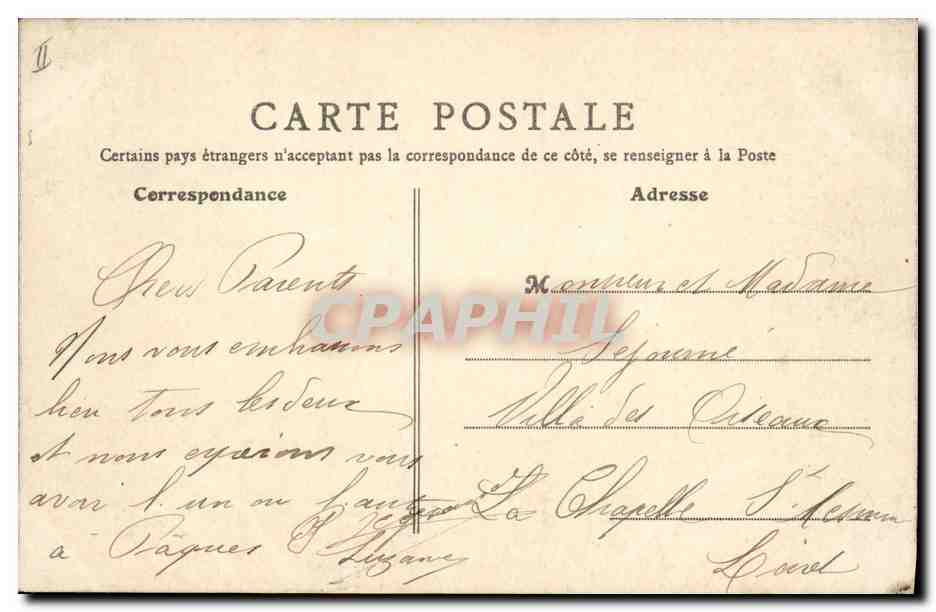 II
CARTE POSTALE
Certains pays étrangers n'acceptant pas la correspondance de ce côté, se renseigner à la Poste
Correspondance
Chers Parents
Nous vous embrassons
bien tous les deux
et nous espérons vous
avoir l'un ou l'autre
à Pâques
Suzanne
Adresse
Monsieur et Madame
Séjourné
Villa des Oiseaux
La Chapelle St Mesmin
Loiret
CPAPHIL